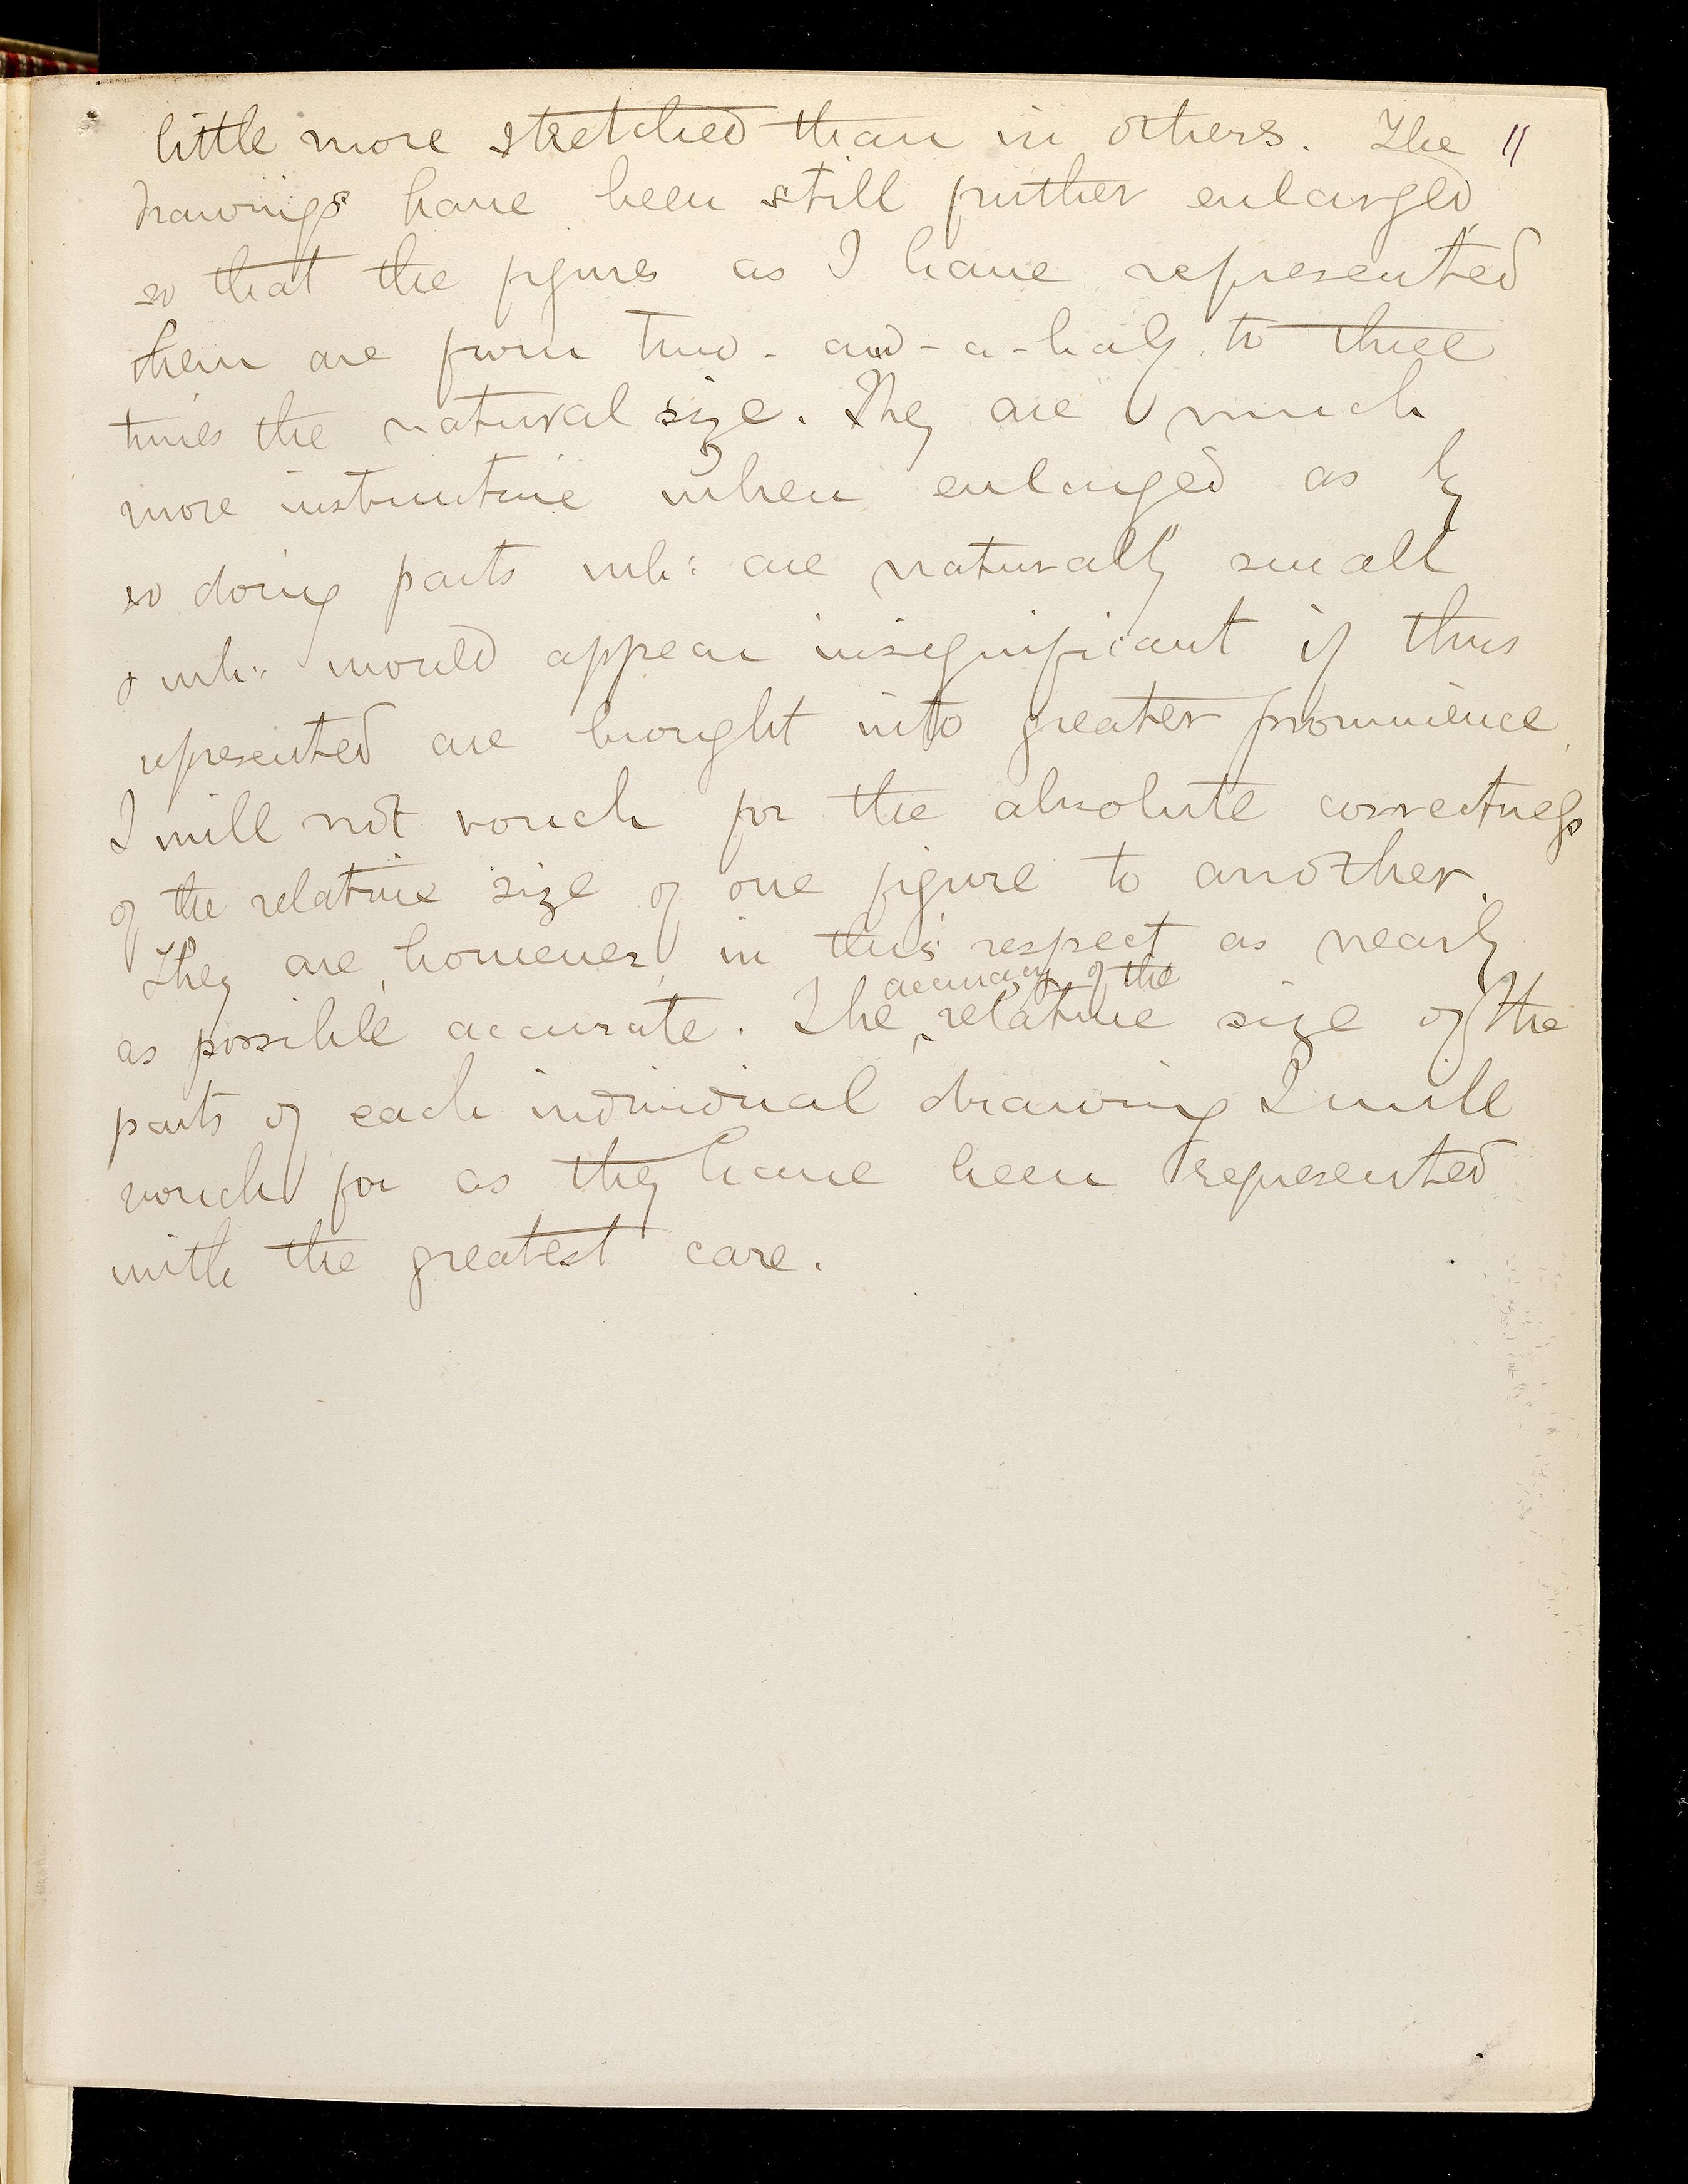 little more stretched than in others. The 11
drawings have been still further enlarged
so that the figures as I have represented
them are from two-and-a-half to three
times the natural size. They are much
more instructive when enlarged as by
so doing parts wh: are naturally small
& wh: would appear insignificant if thus
represented are brought into greater prominence.
I will not vouch for the absolute correctness
of the relative size of one figure to another.
They are, however, in this respect as nearly
accuracy of the
as possible accurate. The ^ relative size of the
parts of each individual drawing I will
vouch for as they have been represented
with the greatest care.